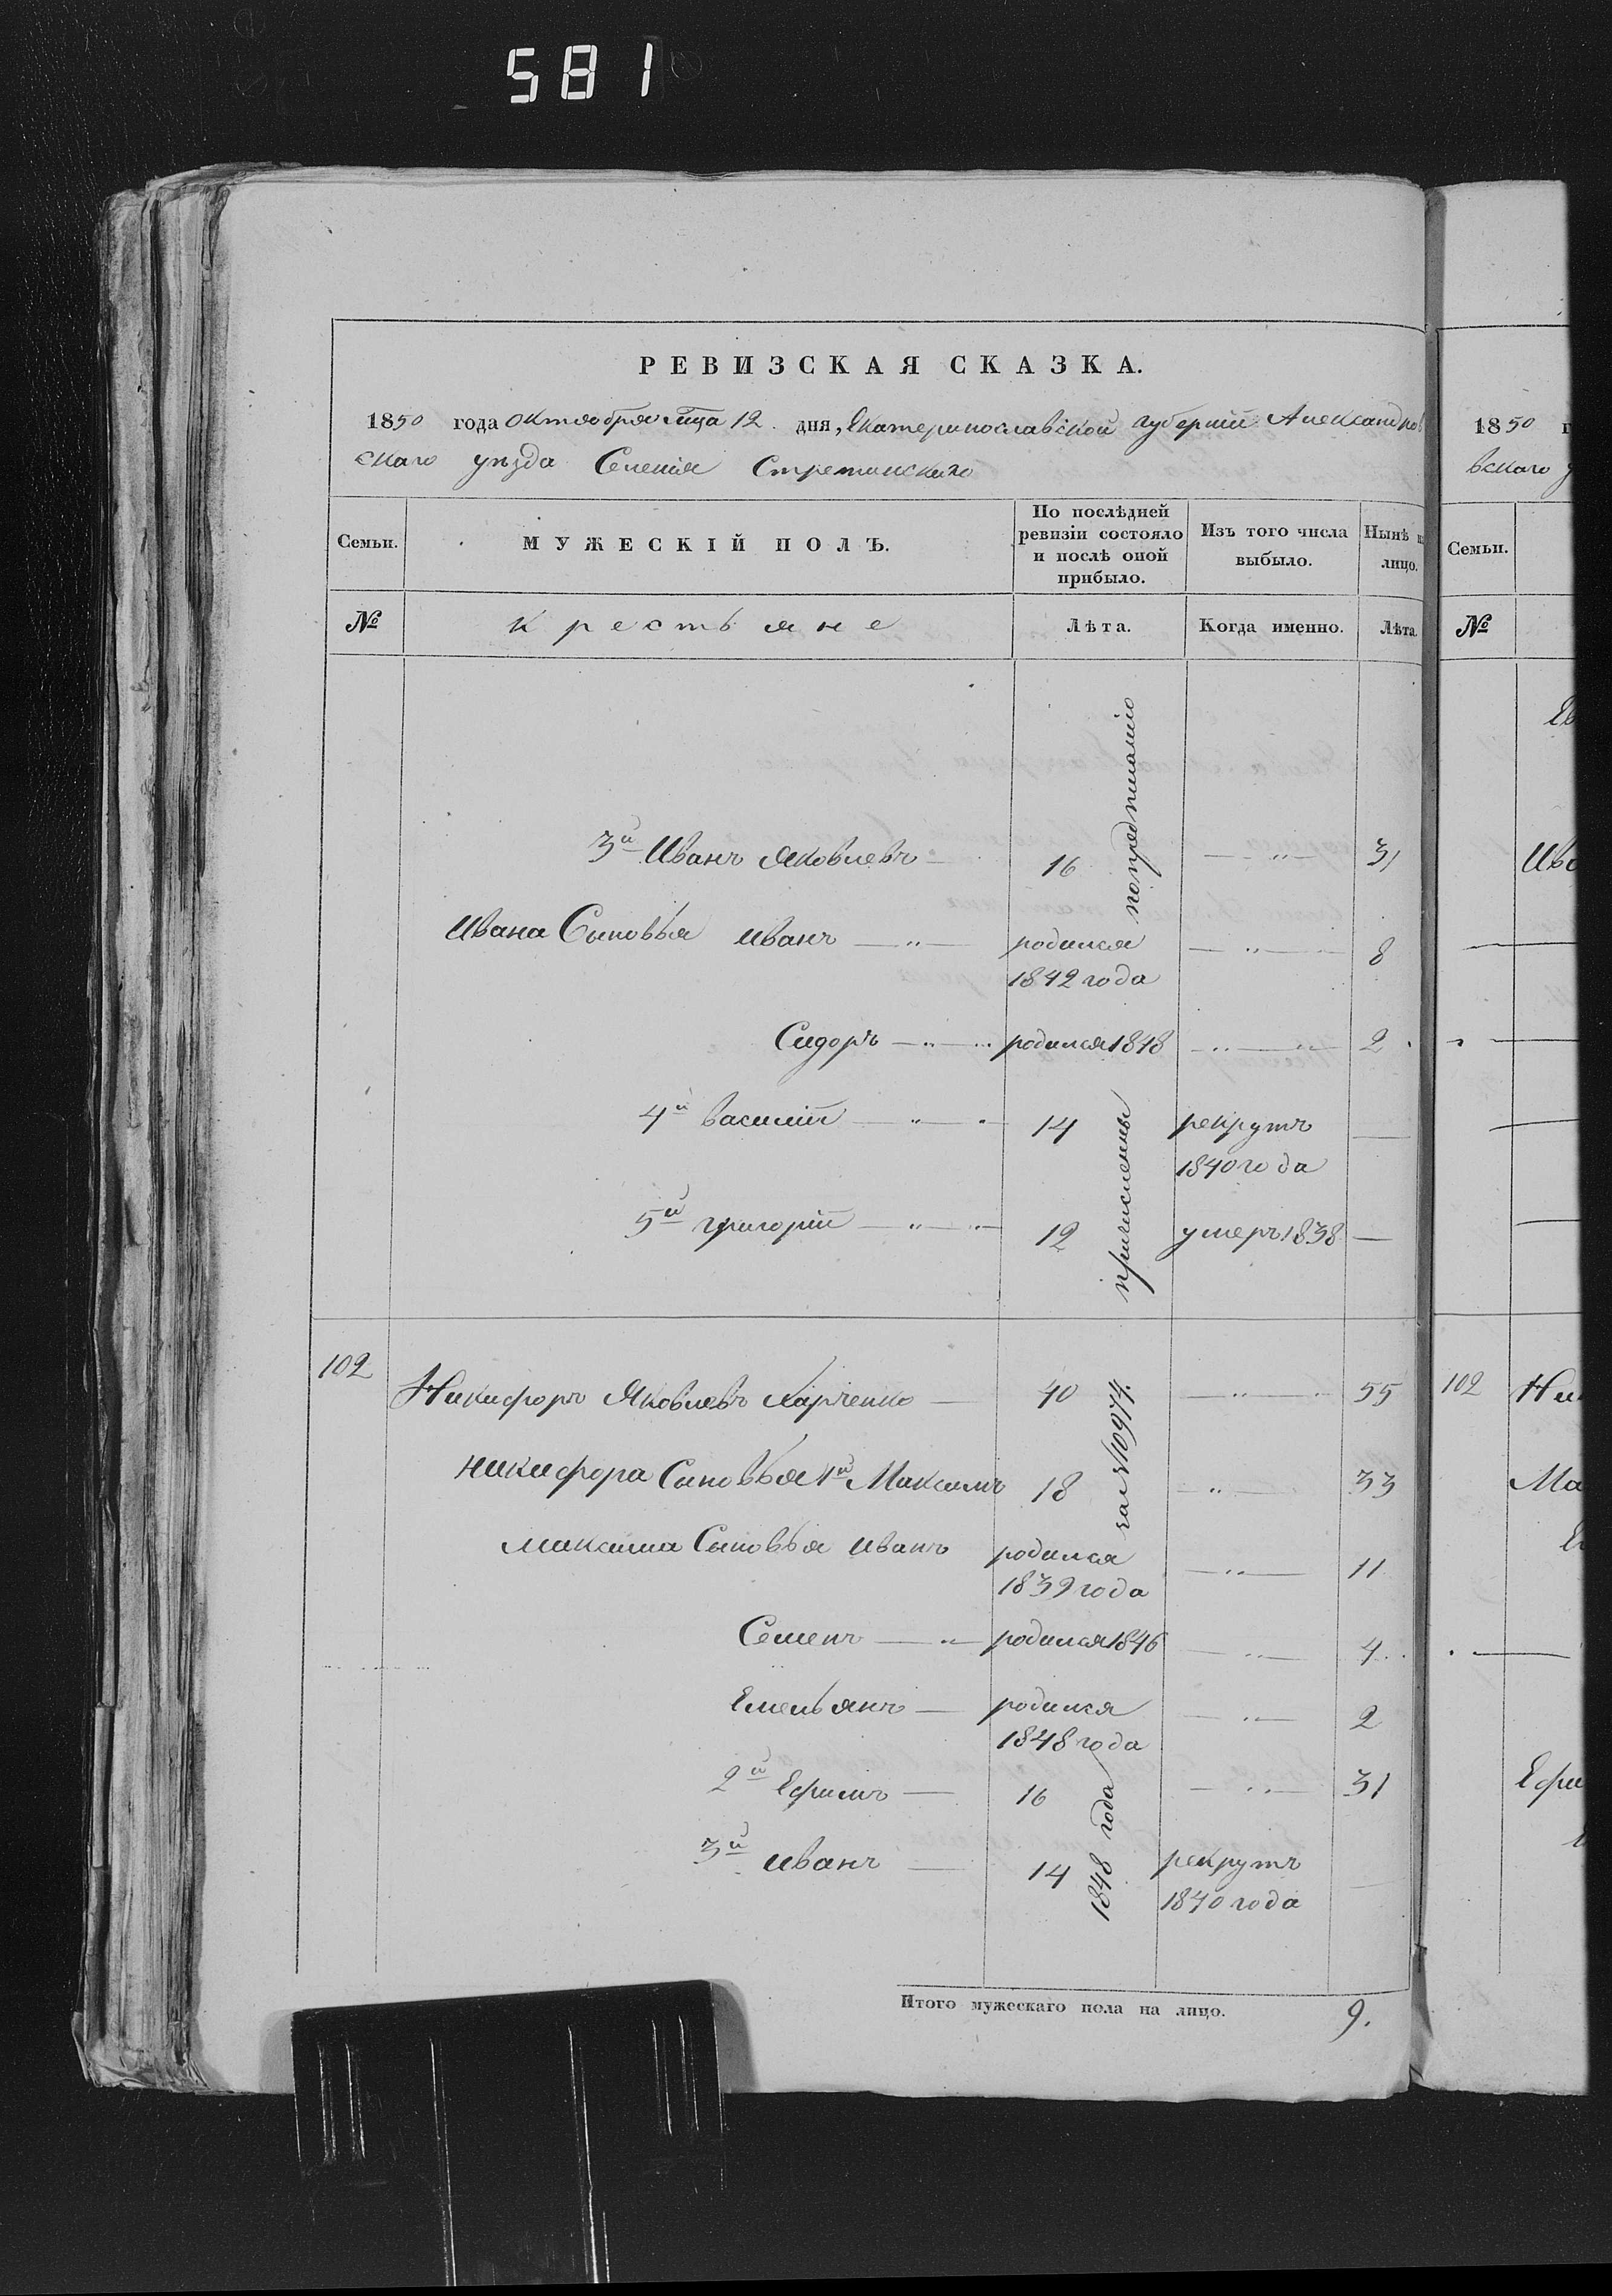 581
РЕВИЗСКАЯ СКАЗКА.
1850 года октября мца 12 дня, Екатеринославской губернии Александров
скаго уезда Селения Стретинскаго
Семьи.
МУЖЕСКІЙ ПОЛЪ.
По послѣдней ревизіи состояло и послѣ оной прибыло.
Изъ того числа выбыло.
Нынѣ на лицо.
№
крестьяне
Лѣта.
Когда именно.
Лѣта.
3й Иванъ Яковлевъ — 16 — „ — 31
Ивана Сыновья Иванъ — „ — родился 1842 года — „ — 8
Сидоръ — „ — родился 1848 — „ — 2
4й Василій — „ — 14 рекрутъ 1840 года —
5й Григорій — „ — 12 умеръ 1838 —
102 Никифоръ Яковлевъ Харченко — 40 — „ — 55
Никифора Сыновья 1й Максимъ 18 — „ — 33
Максима Сыновья Иванъ родился 1839 года — „ — 11
Семенъ — „ — родился 1846 — „ — 4
Емельянъ — родился 1848 года — „ — 2
2й Ефимъ — 16 — „ — 31
3й Иванъ — 14 рекрутъ 1840 года —
по предписанію
причислены
за №10974.
1848 года
Итого мужескаго пола на лицо. 9.
1850 г
вскаго у
Семьи.
№
Ив
102 Ни
Ма
Ефи